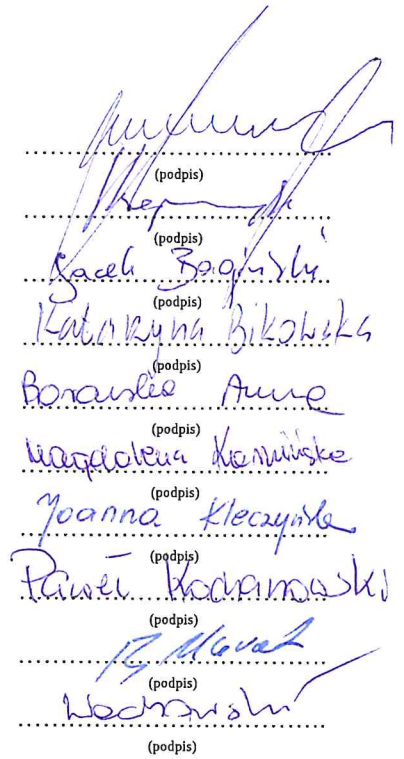 (podpis)
(podpis)
Jacek Bagiński
(podpis)
Katarzyna Bikowska
(podpis)
Borawska Anna
(podpis)
Magdalena Kamińska
(podpis)
Joanna Kleczyńska
(podpis)
Paweł Kochanowski
(podpis)
(podpis)
(podpis)